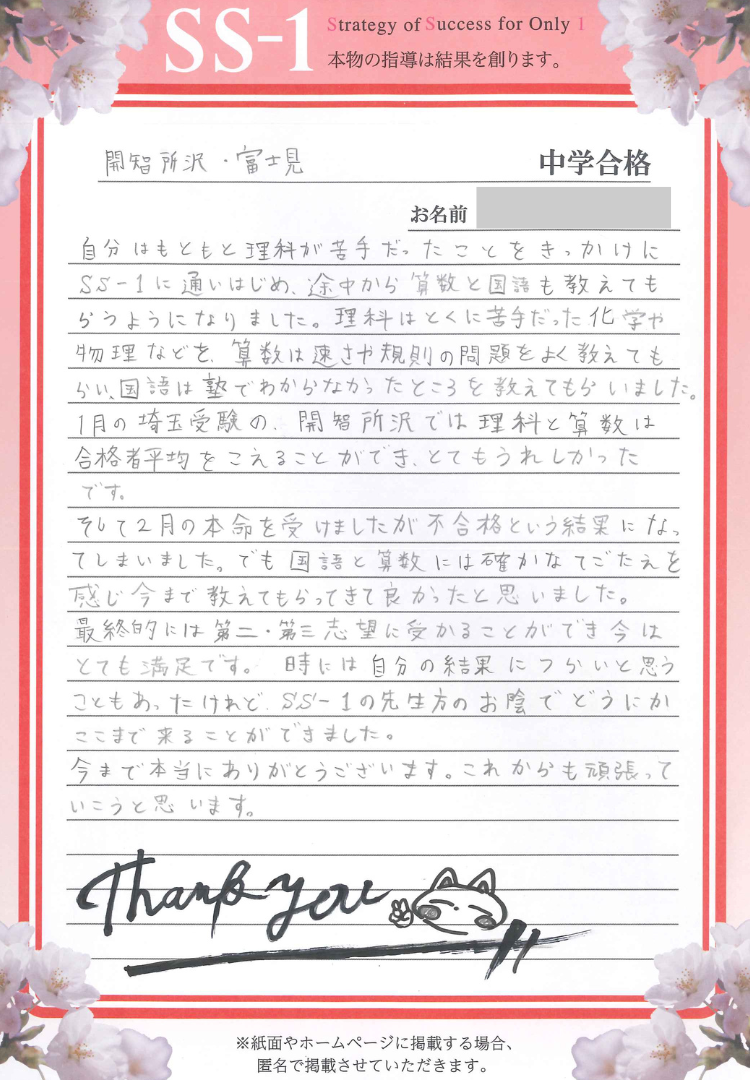 SS-1
Strategy of Success for Only 1
本物の指導は結果を創ります。
開智所沢・富士見 中学合格
お名前
自分はもともと理科が苦手だったことをきっかけに
SS-1に通いはじめ、途中から算数と国語も教えても
らうようになりました。理科はとくに苦手だった化学や
物理などを、算数は速さや規則の問題をよく教えても
らい、国語は塾でわからなかったところを教えてもらいました。
1月の埼玉受験の、開智所沢では理科と算数は
合格者平均をこえることができ、とてもうれしかった
です。
そして2月の本命を受けましたが不合格という結果になっ
てしまいました。でも国語と算数には確かなてごたえを
感じ今まで教えてもらってきて良かったと思いました。
最終的には第二・第三志望に受かることができ今は
とても満足です。 時には自分の結果につらいと思う
こともあったけれど、SS-1の先生方のお陰でどうにか
ここまで来ることができました。
今まで本当にありがとうございます。これからも頑張って
いこうと思います。
Thank you
※紙面やホームページに掲載する場合、
匿名で掲載させていただきます。